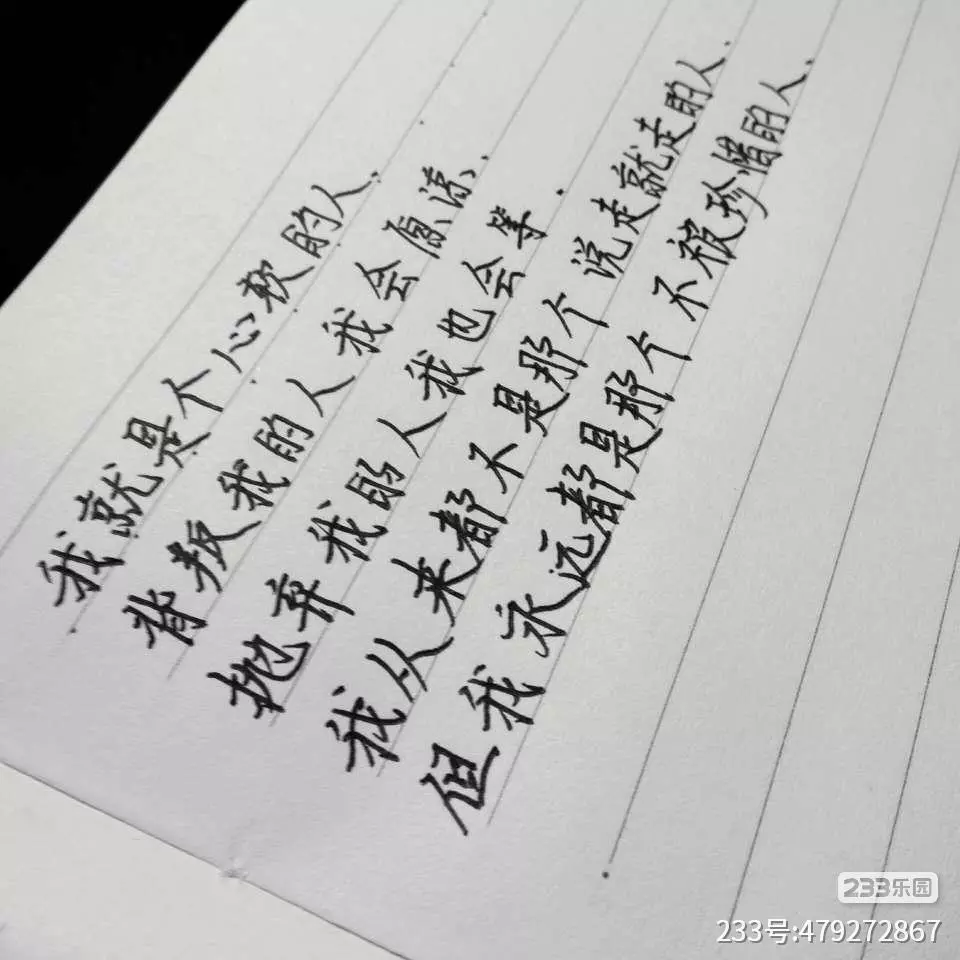 我就是个心软的人.
背叛我的人我会原谅.
抛弃我的人我也会等.
我从来都不是那个说走就走的人.
但我永远都是那个不被珍惜的人.
233乐园
233号:479272867